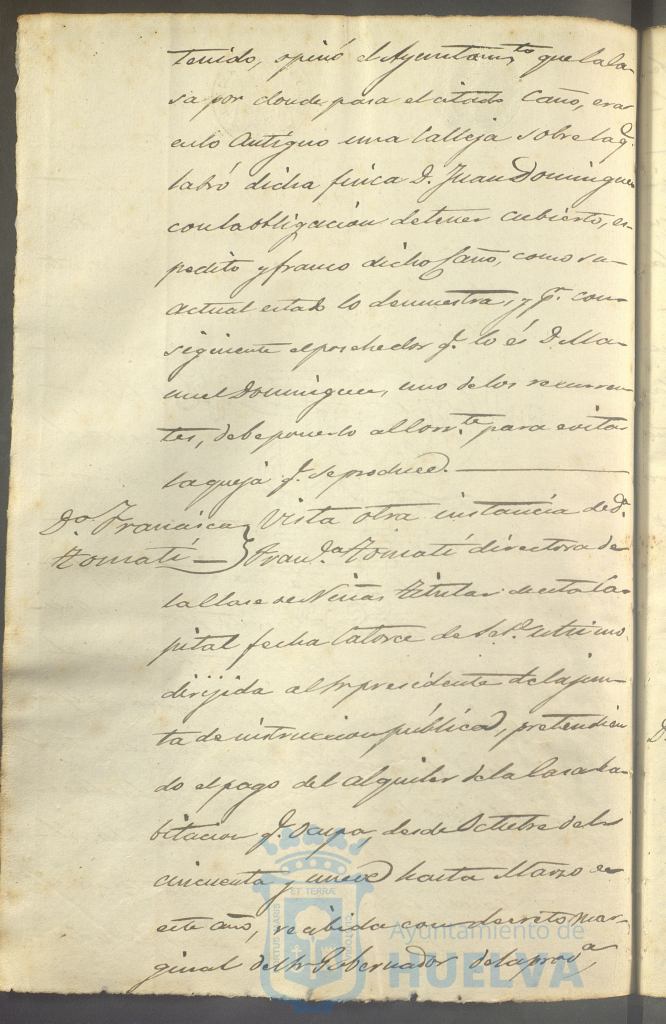 tenido, opinó el Ayuntamto que la ca-
sa por donde pasa el citado Caño, era
en lo Antiguo una Calleja sobre la q.
labró dicha finca D. Juan Dominguez
con la obligacion de tener cubierto, es-
pedito y franco dicho Caño, como su
actual estado lo demuestra, y p.r con-
siguiente el posehedor q. lo és D. Ma-
nuel Dominguez, uno de los recurren-
tes, debe ponerlo al corrte para evitar
la queja q. se produce.
Da. Francisca
Tomatí
Vista otra instancia de Da.
Franca Tomatí directora de
la Clase de Niñas titular de esta Ca-
pital fecha Catorce de último
dirijida al Sr presidente de la jun-
ta de instruccion pública, pretendien
do el pago del alquiler de la Casa ha-
bitacion q. ocupa, desde Octubre del
cincuenta y nueve hasta Marzo de
este año, recibida con decreto mar-
ginal del Sr Gobernador de la prova
Ayuntamiento de
HUELVA